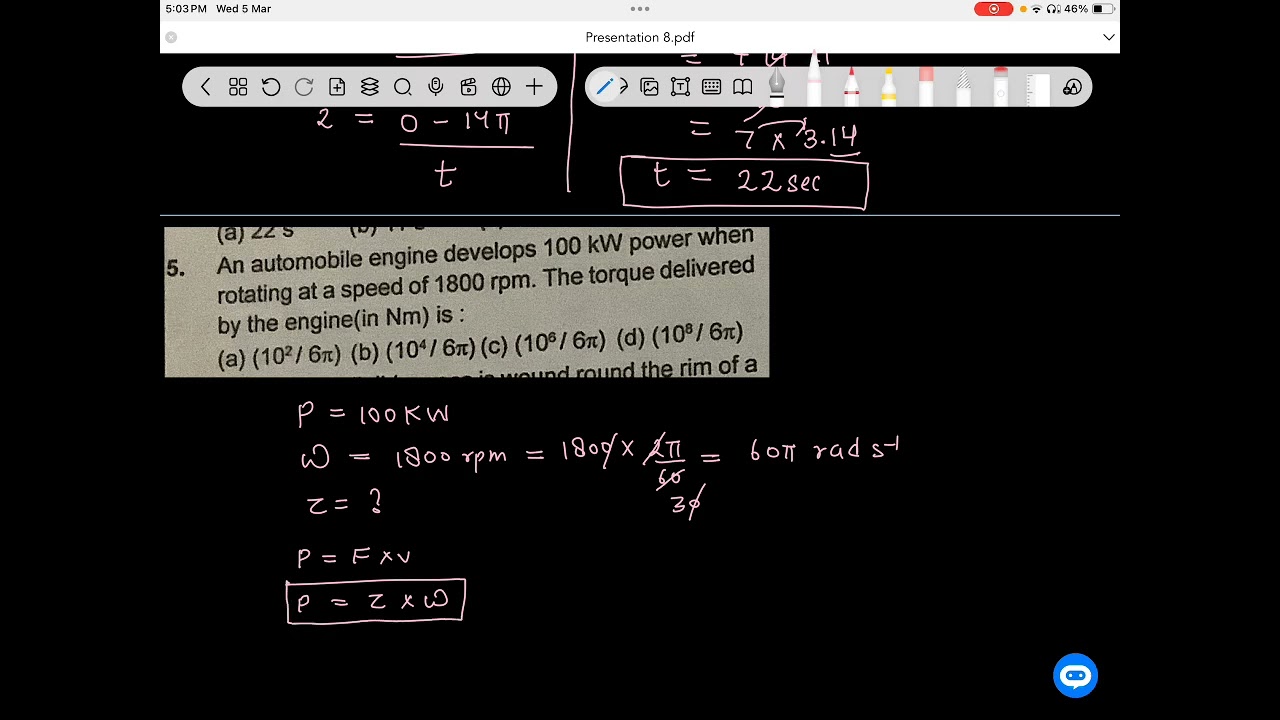 5:03 PM Wed 5 Mar
46%
Presentation 8.pdf
2 = 0 - 14π
t
= 7 × 3.14
t = 22 sec
(a) 22 s
5. An automobile engine develops 100 kW power when
rotating at a speed of 1800 rpm. The torque delivered
by the engine(in Nm) is :
(a) (10²/ 6π) (b) (10⁴/ 6π) (c) (10⁶/ 6π) (d) (10⁸/ 6π)
is wound round the rim of a
P = 100 KW
ω = 1800 rpm = 1800 × 2π/60 = 60π rad s⁻¹
30
τ = ?
P = F × v
P = τ × ω